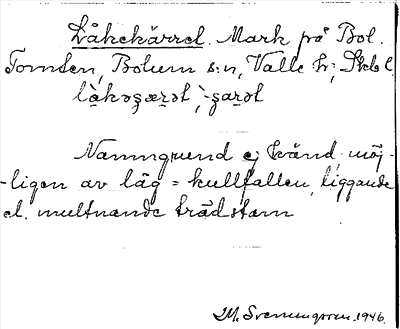 Låkekärret. Mark på Bol.
Tomten, Bolum s:n, Valle h:, Skbl.
Namngrund ej känd. möj-
-ligen av låg = kullfallen, liggande
el. multnande trädstam
M. Svenungsson. 1946.